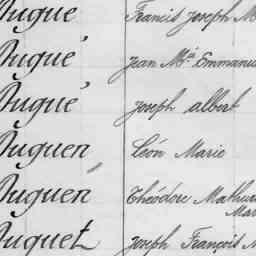 Dugué Francis Joseph M
Dugué Jean Mie Emmanu
Dugué Joseph Albert
Duguen Léon Marie
Duguen Théodore Mathur
Mar
Duguet Joseph François M